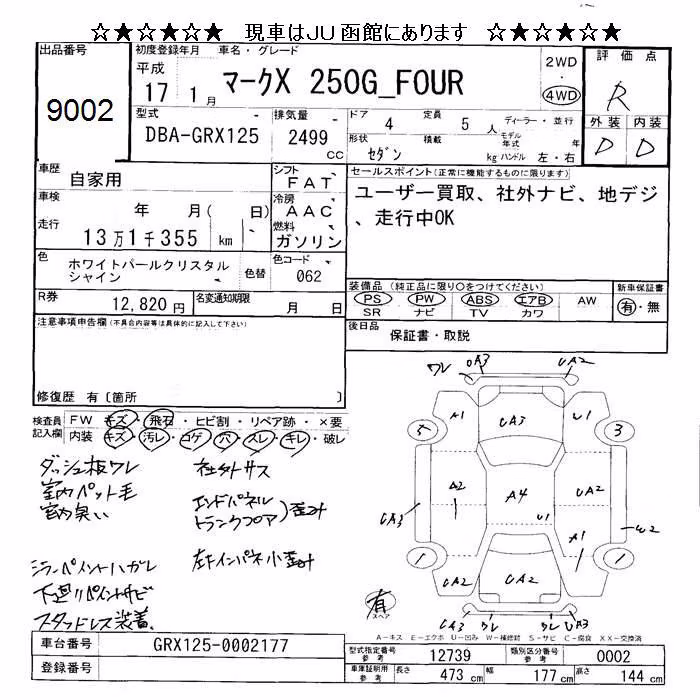 ☆★☆★☆★ 現車はJU函館にあります ☆★☆★☆★
出品番号
9002
初度登録年月 車名・グレード
平成
17 1月
マークX 250G_FOUR
2WD
・
4WD
評価点
R
外装 内装
D D
型式
DBA-GRX125
排気量
2499
cc
ドア 4 定員 5人
形状 セダン 積載 kg
ディーラー・並行
モデル年式 年
ハンドル 左・右
車歴
自家用
シフト
FAT
車検
年 月( 日)
冷房
AAC
走行
13万1千355 km
燃料
ガソリン
色
ホワイトパールクリスタル
シャイン
色替
色コード
062
R券
12,820円
名変通知期限
月 日
セールスポイント(正常に機能するものに限ります)
ユーザー買取、社外ナビ、地デジ
、走行中OK
装備品(純正品に限り○をつけてください)
PS PW ABS エアB AW
SR ナビ TV カワ
新車保証書
有・無
後日品
保証書・取説
注意事項申告欄(不具合内容等は具体的に記入して下さい)
修復歴 有〔箇所 〕
検査員
記入欄
FW キズ・飛石・ヒビ割・リペア跡・×要
内装 キズ・汚レ・コゲ・穴・スレ・キレ・破レ
ダッシュ板ワレ
室内ペット毛
室内臭い
社外サス
エンドパネル
トランクフロア
)歪み
ミラーペイントハガレ
左右インパネ小歪み
下廻りペイントサビ
スタッドレス装着
ワレ UA3 UA2
A1 UA3 U1
5 3
A2 A4 UA2
U1
UA3 W2
A1
1 1
UA2 UA2
UA3 ワレ ワレ UA3
有
スペア
A-キズ E-エクボ U-凹み W-補修跡 S-サビ C-腐食 XX-交換済
車台番号
GRX125-0002177
登録番号
型式指定番号
参考
12739
類別区分番号
参考
0002
車庫証明用
参考
長さ 473 cm 幅 177 cm 高さ 144 cm